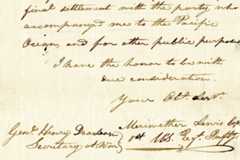 final settlement with the party who
accompanyed me to the Pacific
Ocean, and for other public purposes
I have the honor to be with
due consideration.
Your Obt. Servt.
Meriwether Lewis Capt.
Genl. Henry Dearborn 1st US. Regt. Infty.
Secretary at War